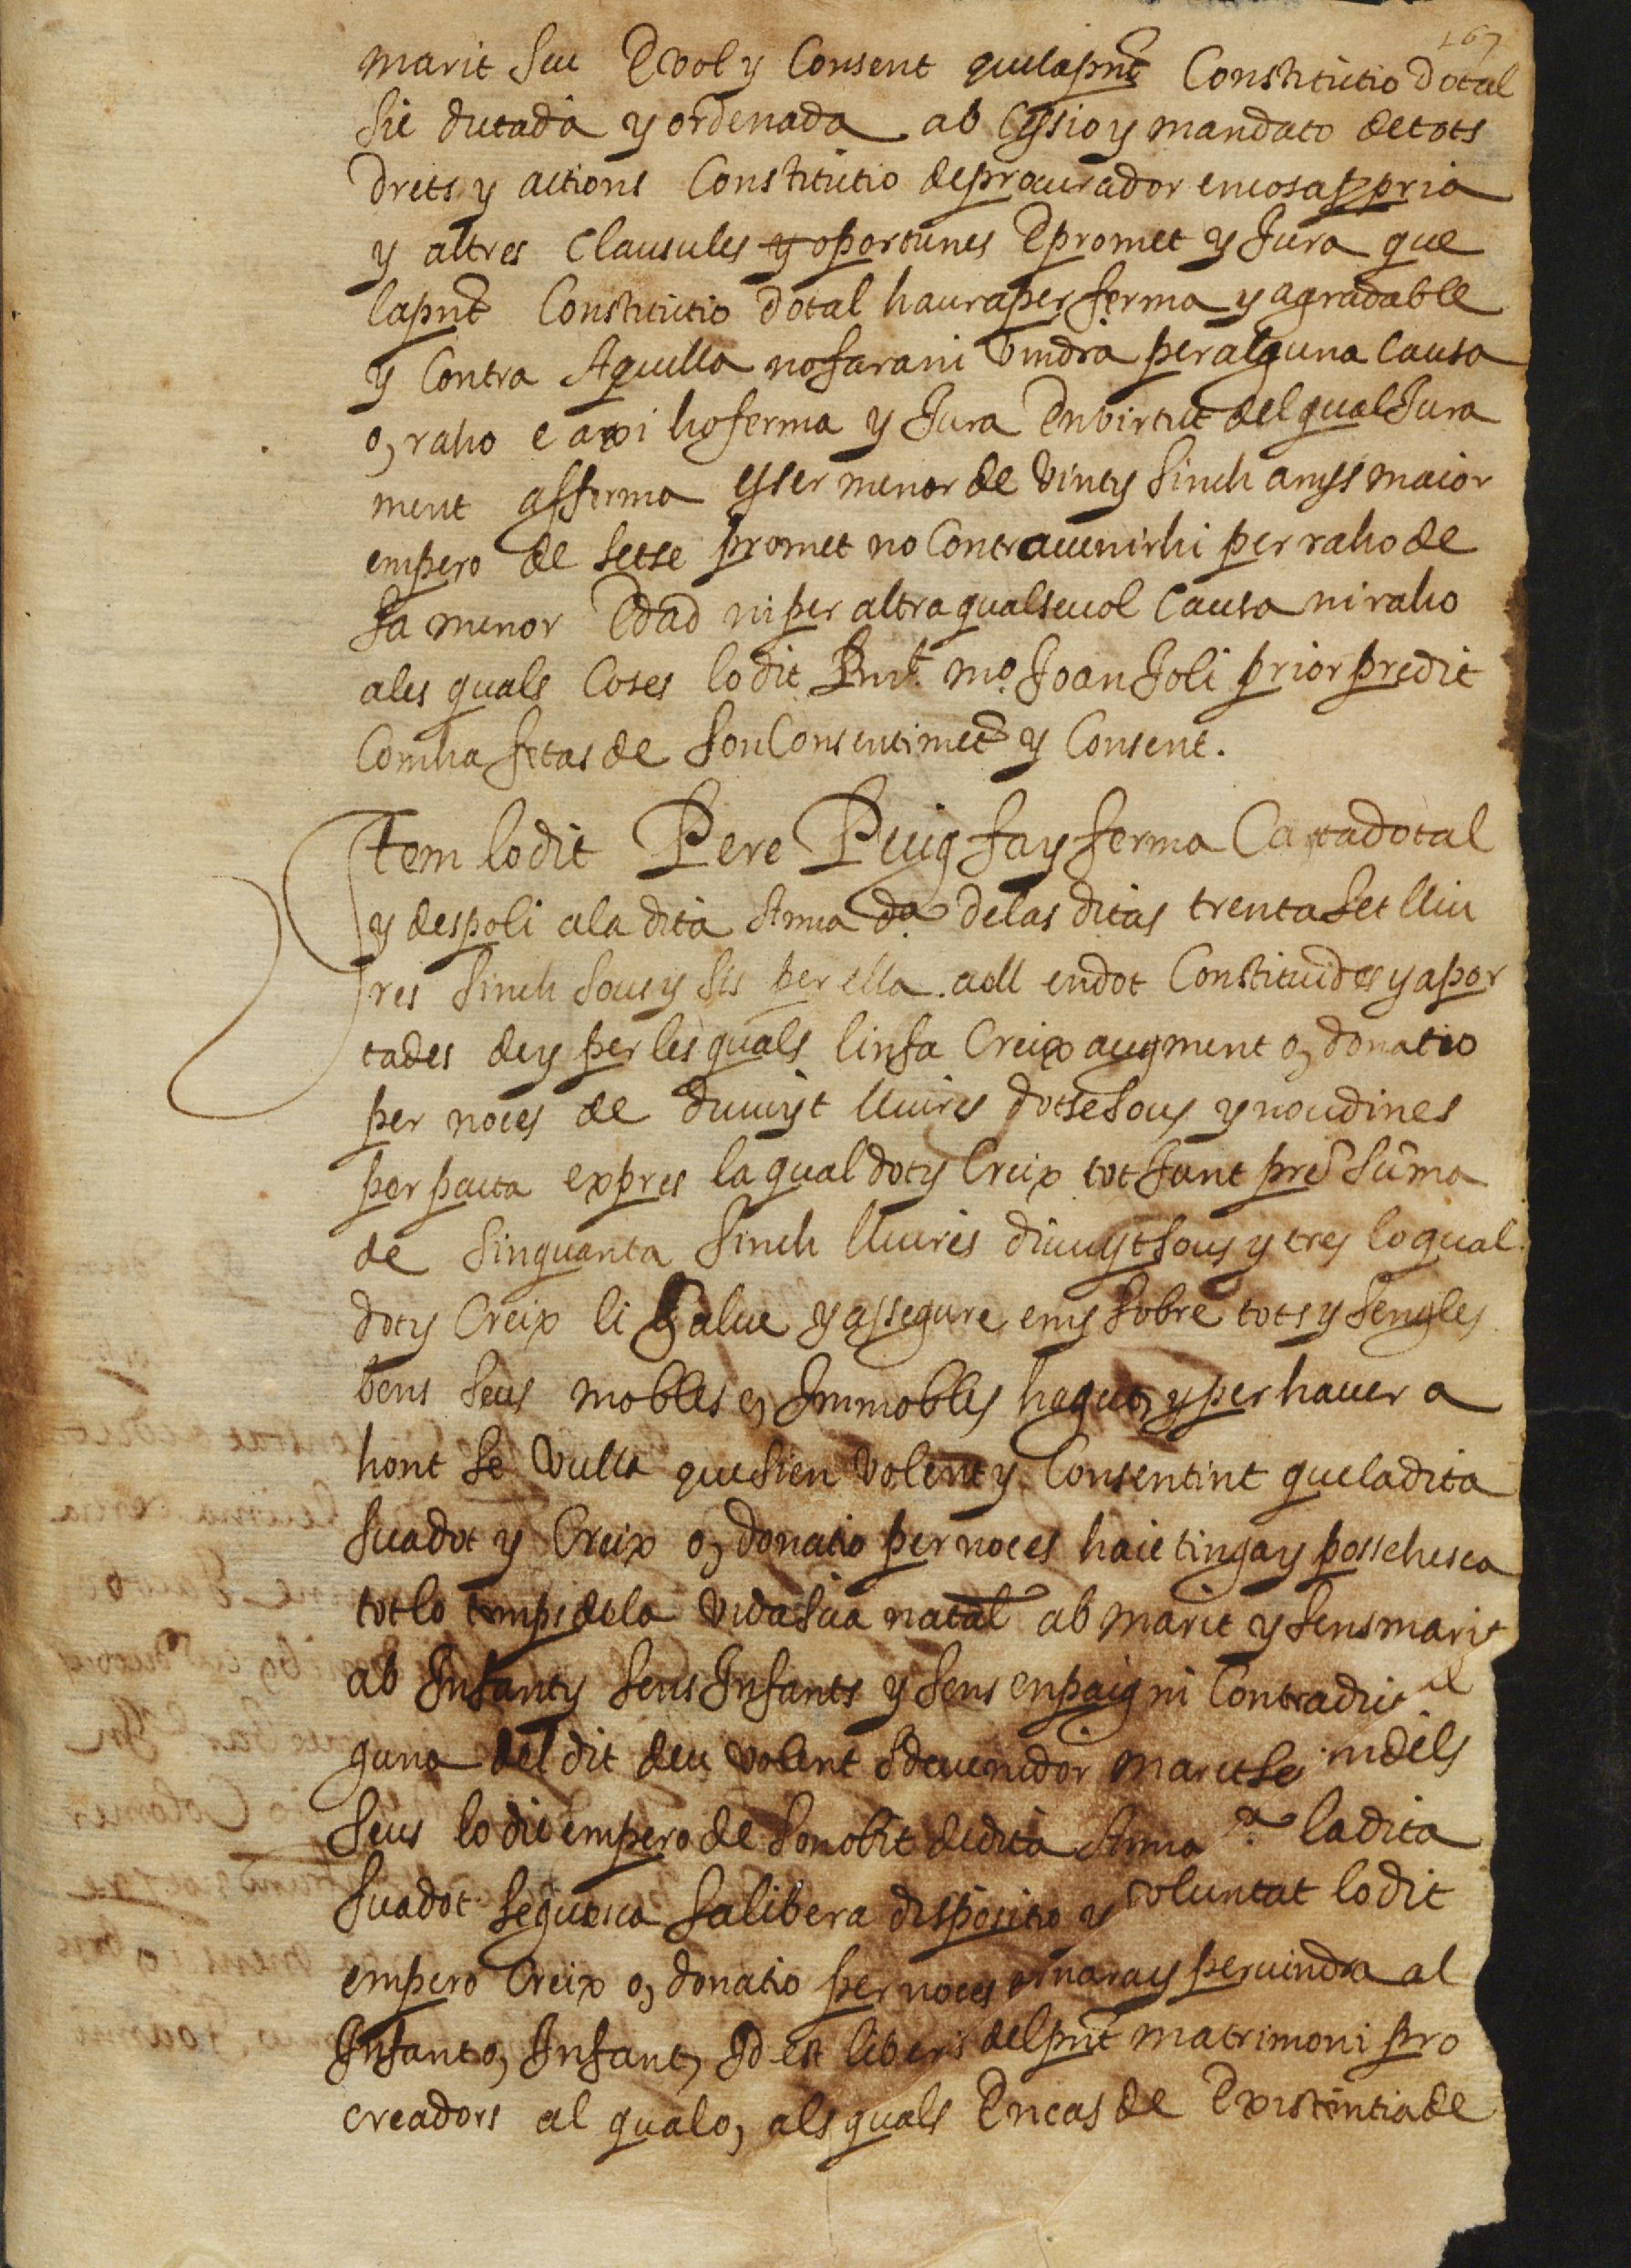 167
marit seu E vol y Consent que la pnt Constitutio dotal
sie dictada y ordenada ab Cessio y mandato de tots
drets y actions Constitutio de procurador en cosa ppria
y altres Clausules y oportunes E promet y Jura que
la pnt Constitutio dotal haura per ferma y agradable
y Contra Aquella no fara ni vindra per alguna Causa
o, raho e axi ho ferma y Jura En virtut del qual Jura
ment afferma esser menor de vint y sinch anys maior
empero de setse promet no Contravenirhi per raho de
sa menor Edad ni per altra qualsevol Causa ni raho
a les quals Coses lo dit Rnt. mo. Joan Joli prior predit
Com ha fetas de son Consentimet y Consent.
Item lo dit Pere Puig fa y ferma Carta dotal
y despoli a la dita Anna da. de las ditas trenta set lliu
res sinch sous y sis per ella a ell en dot Constituides y apor
tades de y per les quals li n fa Creix augment o, donatio
per noces de divuyt lliures dotse sous y nou dines
per pacta expres la qual dot y Creix tot Junt pre suma
de sinquanta sinch lliures divuyt sous y tres lo qual
dot y Creix li salve y assegure en y sobre tots y sengles
bens seus mobles e, Immobles hagut, y per haver a
hont se vulla que sien volent y Consentint que la dita
sua dot y Creix o, donatio per noces haie tinga y possehesca
tot lo temps de la vida sua natal ab marit y sens marit
ab Infants y sens Infants y sens enpaig ni Contradict al
guna del dit deu volent esdevenidor marit seu ni dels
seus lo dit empero de son obit de dita Anna a. la dita
sua dot seguesca sa libera dispositio y voluntat lo dit
empero Creix o, donatio per noces ornara y pervindra al
Infant o, Infant, Id est liberis del pnt matrimoni pro
creadors al qual o, als quals En cas de Existentia de